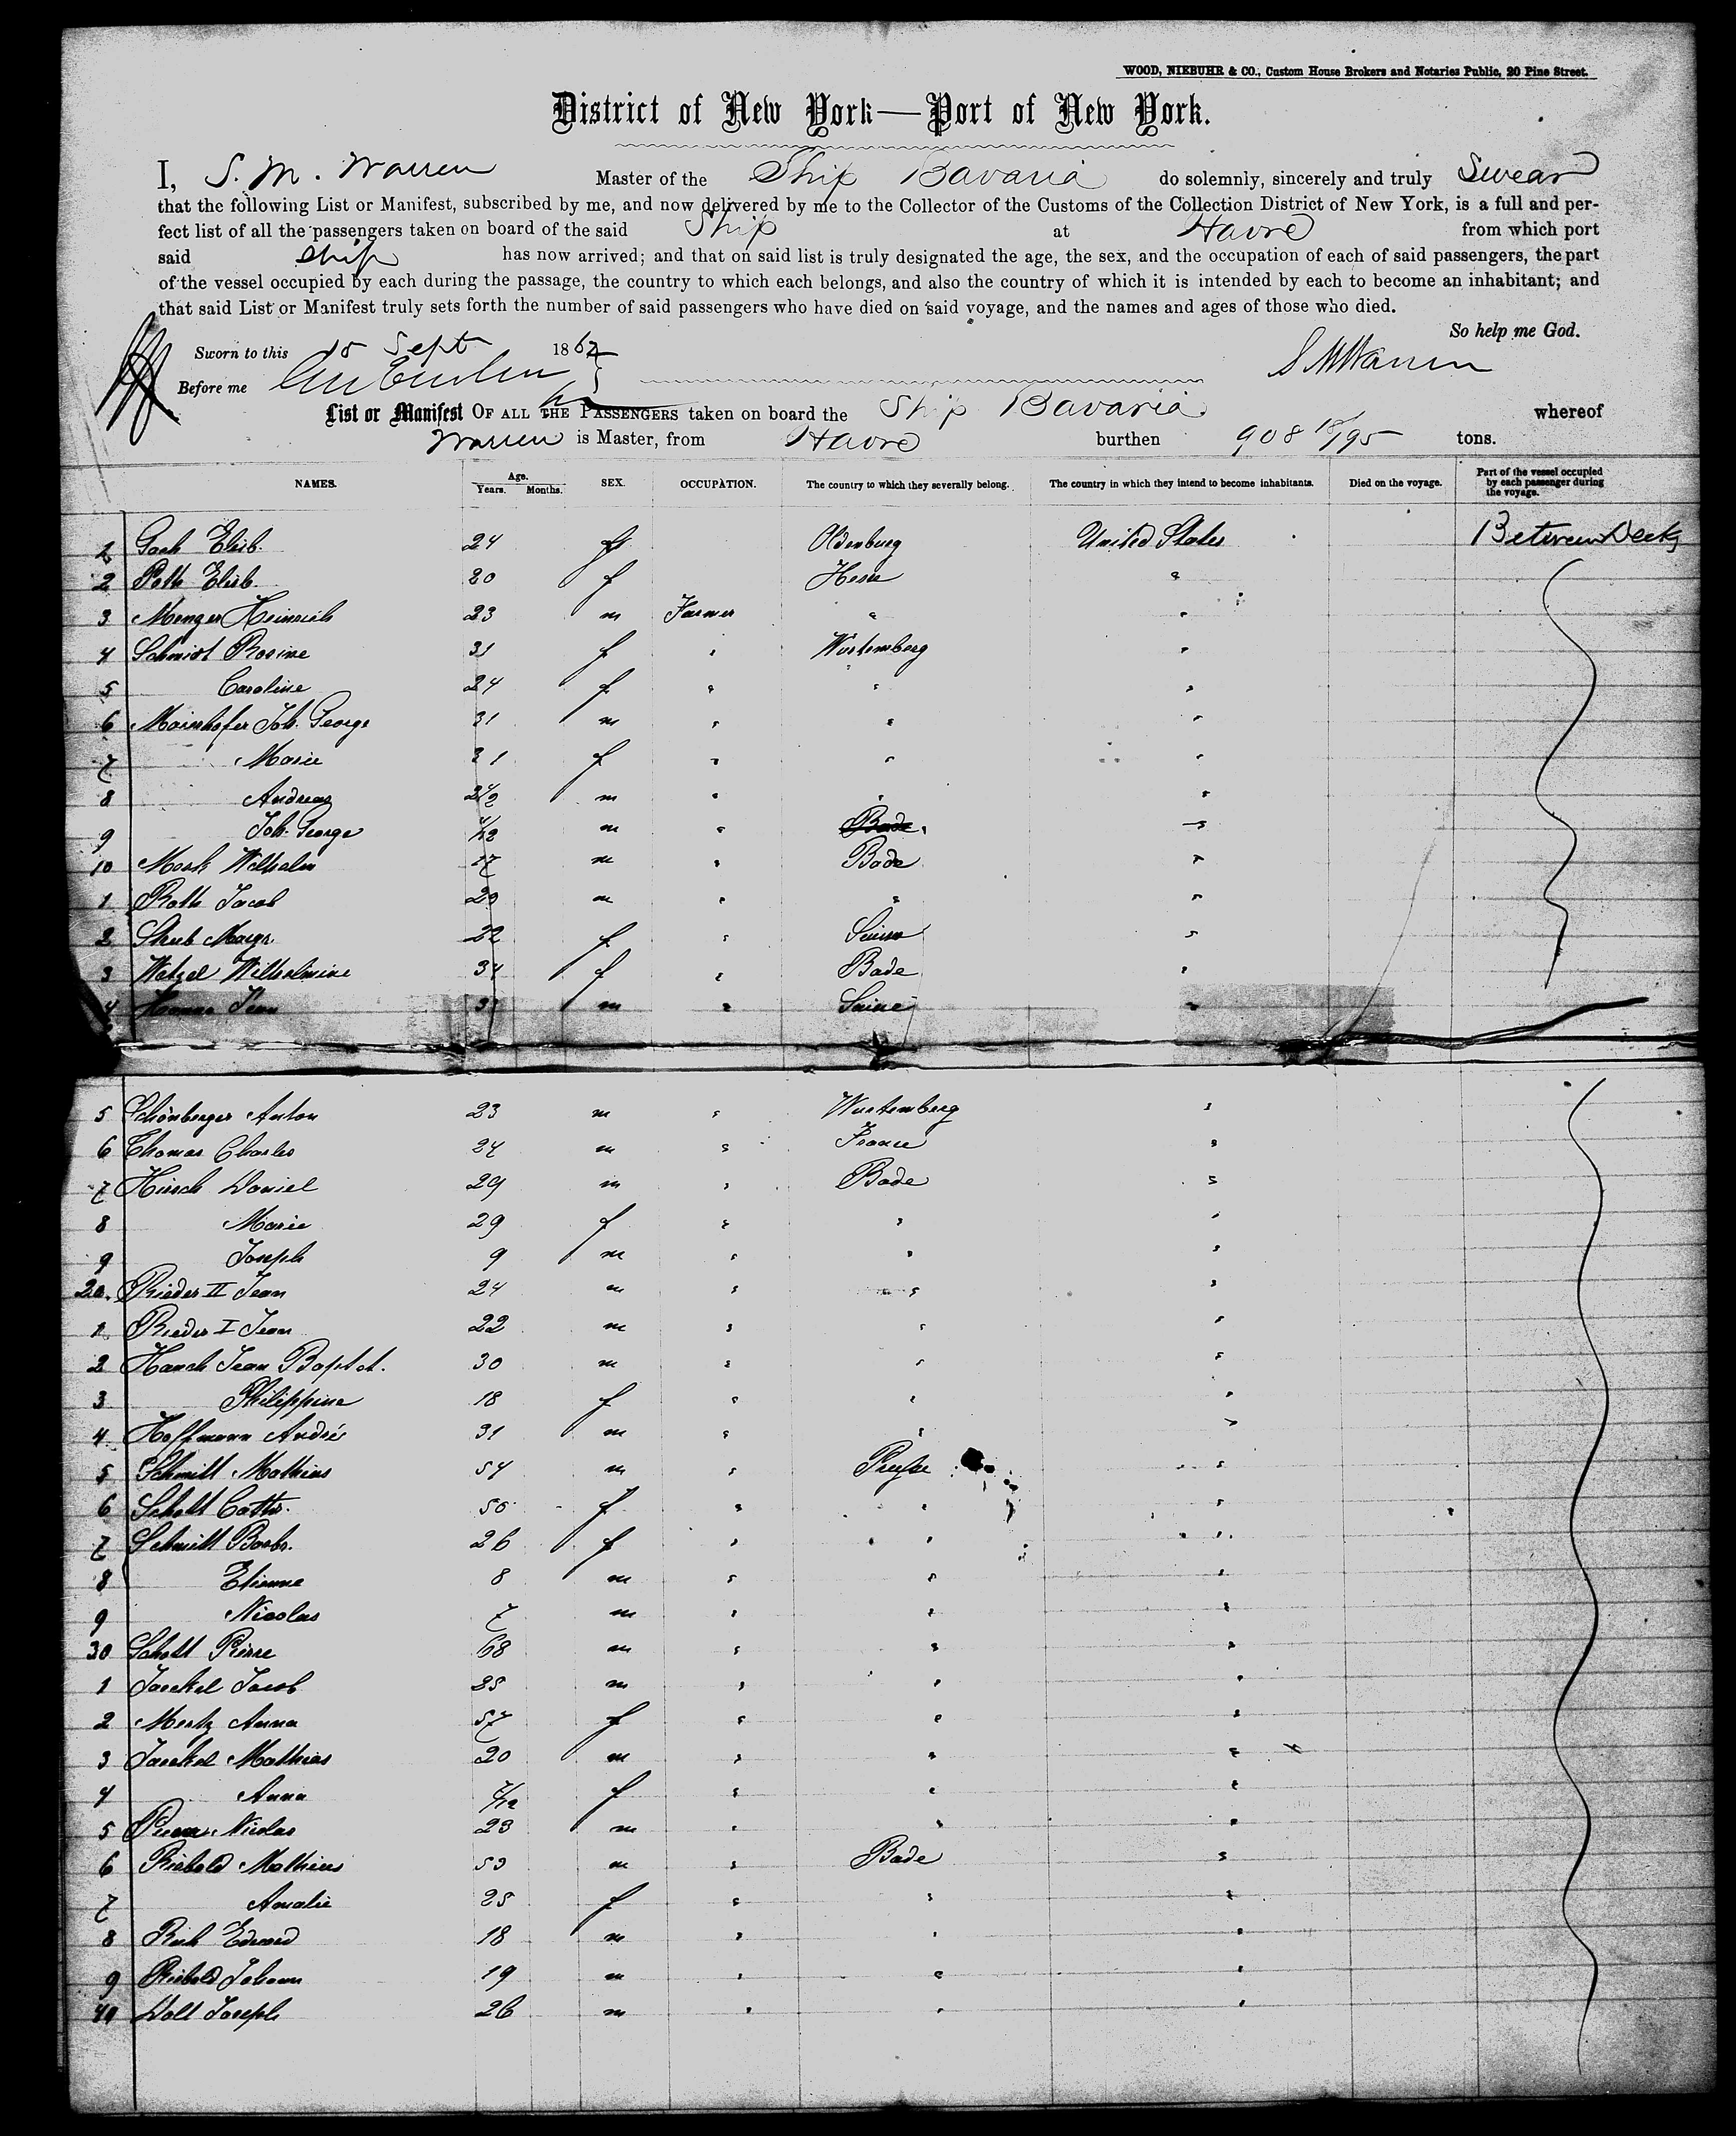 WOOD, NIEBUHR & CO., Custom House Brokers and Notaries Public, 20 Pine Street.
District of New York—Port of New York.
I, S. M. Warren Master of the Ship Bavaria do solemnly, sincerely and truly Swear
that the following List or Manifest, subscribed by me, and now delivered by me to the Collector of the Customs of the Collection District of New York, is a full and per-
fect list of all the passengers taken on board of the said Ship at Havre from which port
said Ship has now arrived; and that on said list is truly designated the age, the sex, and the occupation of each of said passengers, the part
of the vessel occupied by each during the passage, the country to which each belongs, and also the country of which it is intended by each to become an inhabitant; and
that said List or Manifest truly sets forth the number of said passengers who have died on said voyage, and the names and ages of those who died.
So help me God.
Sworn to this 15 Sept 1862
S M Warren
Before me
List or Manifest OF ALL THE PASSENGERS taken on board the Ship Bavaria whereof
Warren is Master, from Havre burthen 908 18/95 tons.
NAMES. Age. Years. Months. SEX. OCCUPATION. The country to which they severally belong. The country in which they intend to become inhabitants. Died on the voyage. Part of the vessel occupied by each passenger during the voyage.
1 Elisb. 24 f Oldenburg United States Between Decks
2 Elisb. 20 f Hesse "
3 Menger Heinrich 23 m Farmer " "
4 Schmidt Rosine 31 f " Wurtemberg "
5 Caroline 24 f " " "
6 Mornhofer Joh. George 31 m " " "
7 Marie 31 f " " "
8 Andreas 2 1/2 m " " "
9 Joh. George /12 m " Bade "
10 Wilhelm 17 m " Bade "
1 Roth Jacob 29 m " " "
2 Straub Margr. 22 f " Suisse "
3 Wetzel Wilhelmine 34 f " Bade "
4 Jean 3 m " Suisse "
5 Schönberger Anton 23 m " Wurtemberg "
6 Thomas Charles 24 m " France "
7 Hirsch Daniel 29 m " Bade "
8 Marie 29 f " " "
9 Joseph 9 m " " "
20 Rieder II Jean 24 m " " "
1 Rieder I Jean 22 m " " "
2 Hauck Jean Baptst. 30 m " " "
3 Philippine 18 f " " "
4 Hoffmann André 31 m " " "
5 Schmitt Mathias 54 m " Prusse "
6 Schott Cath. 50 f " " "
7 Schmitt Barbr. 26 f " " "
8 Etienne 8 m " " "
9 Nicolas 7 m " " "
30 Schott Pierre 68 m " " "
1 Jaeckel Jacob 25 m " " "
2 Mertz Anna 57 f " " "
3 Jaeckel Mathias 20 m " " "
4 Anna 7/12 f " " "
5 Nicolas 23 m " " "
6 Riebold Mathias 53 m " Bade "
7 Amalie 25 f " " "
8 Edward 18 m " " "
9 Riebold Johann 19 m " " "
40 Joseph 26 m " " "